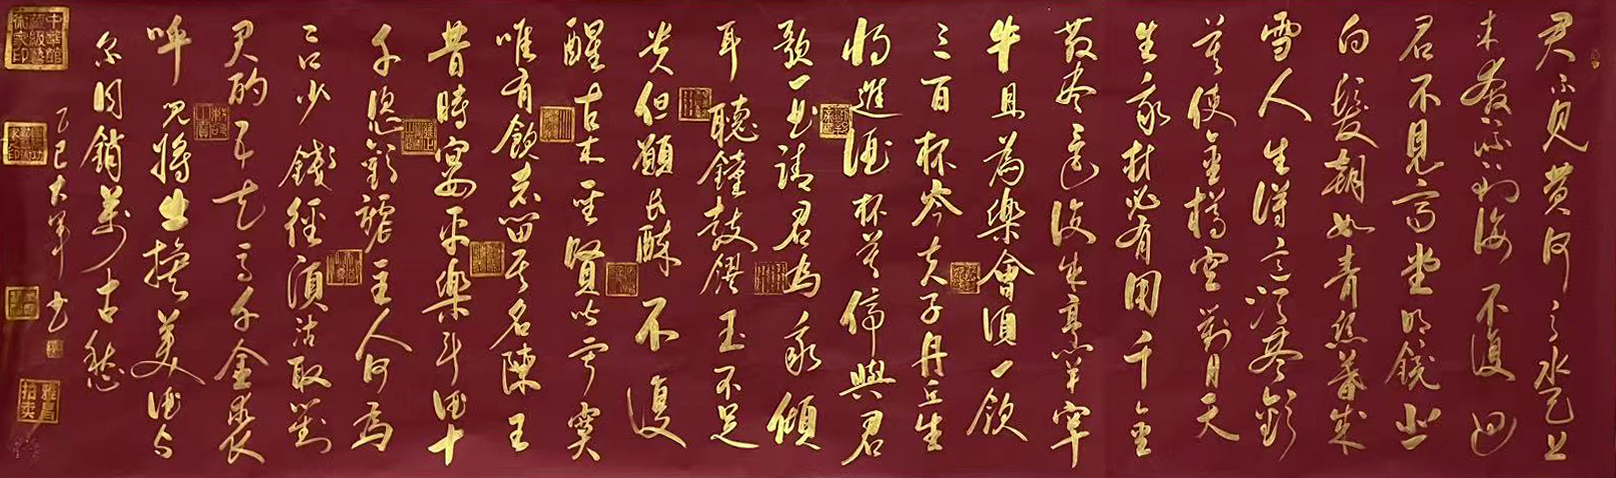 君不見黃河之水天上
来奔流到海不復回
君不見高堂明鏡悲
白髮朝如青絲暮成
雪人生得意須盡歡
莫使金樽空對月天
生我材必有用千金
散盡還復来烹羊宰
牛且為樂會須一飲
三百杯岑夫子丹丘生
將進酒杯莫停與君
歌一曲請君為我傾
耳聽鐘鼓饌玉不足
贵但願長醉不復
醒古来聖賢皆寂寞
唯有飲者留其名陳王
昔時宴平樂斗酒十
千恣歡謔主人何為
言少錢徑須沽取對
君酌五花馬千金裘
呼兒將出換美酒与
尔同銷萬古愁
乙巳大軍书
雅昌拍卖